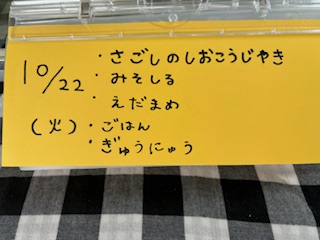 10/22
(火)
・さごしのしおこうじやき
・みそしる
・えだまめ
・ごはん
・ぎゅうにゅう